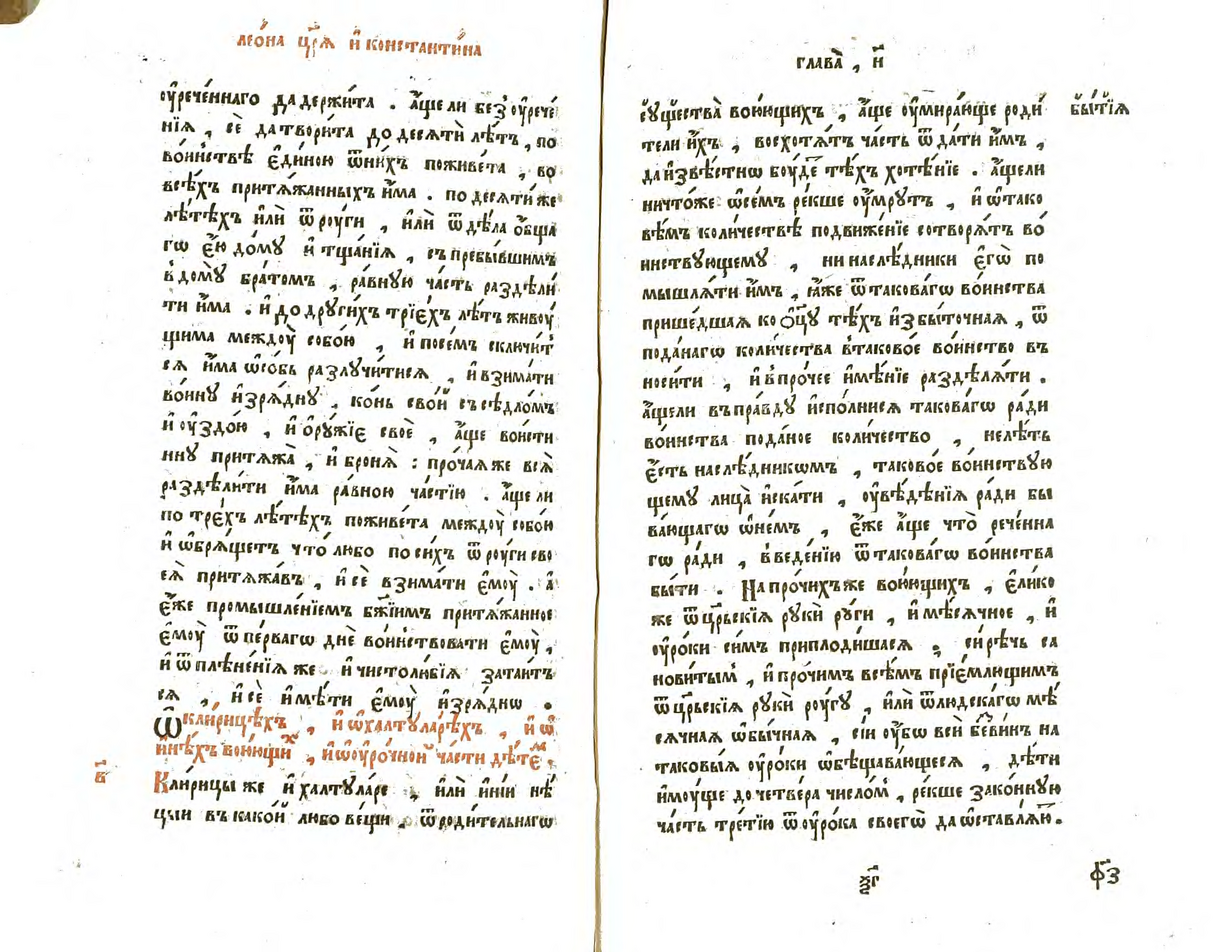 леѡ́на цр҃ѧ и҆ константи́на
ѹ҆рече́ннаго да держи́та . а҆́ще ли без̾ ѹ҆рече́
нїѧ , сѐ да твори́та до десѧтѝ лѣ́тъ , по
во́инствѣ є҆ди́ною ѿ ни́хъ поживе́та , во
всѣ́хъ притѧ́жанныхъ и҆́ма . по десѧти́ же
лѣ́тѣхъ и҆лѝ ѿ рѹ́ги , и҆лѝ ѿ дѣ́ла ѻ҆́бща
гѡ є҆ю̀ до́мꙋ и҆ тща́нїѧ , съ пребы́вшимъ
в̾ домꙋ̀ бра́томъ , ра́внꙋю ча́сть раздѣли́
ти и҆́ма . и҆ до дрꙋги́хъ трїе́хъ лѣ́тъ живѹ́
щима междѹ̀ собо́ю , и҆ посе́мъ сключи́т
сѧ и҆́ма ѡ҆со́бь разлꙋчи́тисѧ , и҆ взима́ти
во́инꙋ и҆зрѧ́днꙋ , ко́нь сво́й съ сѣдло́мъ
и҆ ѹ҆здо́ю , и҆ ѻ҆рꙋ́жїе своѐ , а҆́ще вои́сти
ннꙋ притѧжа̀ , и҆ бронѧ̀ : про́чаѧ же всѧ̀
раздѣли́ти и҆́ма ра́вною ча́стїю . а҆́ще ли
по тре́хъ лѣ́тѣхъ поживе́та междѹ̀ собо́ю
и҆ ѡ҆брѧ́щетъ что̀ любо по си́хъ ѿ рѹ́ги сво
еѧ̀ притѧжа́въ , и҆ сѐ взима́ти є҆мѹ̀ . а҆
є҆́же промышле́нїемъ бж҃їимъ притѧ́жанное
є҆мѹ̀ ѿ пе́рвагѡ днѐ во́инствовати є҆мѹ̀ ,
и҆ ѿ плѣне́нїѧ же и҆ чистолю́бїѧ затаи́тъ
сѧ , и҆ сѐ и҆мѣ́ти є҆мѹ̀ и҆зрѧ́днѡ .
Ѡ҆ кли́рицѣхъ , и҆ ѡ҆ халтꙋла́рѣхъ , и҆ ѡ҆
и҆нѣ́хъ вою́ющихъ , и҆ ѡ҆ ѹ҆ро́чной ча́сти дѣ́тем .
в҃
Кли́рицы же и҆ халтꙋла́ре , и҆лѝ и҆ні́и нѣ́
цыи въ како́й любо ве́щи , ѿ роди́тельнагѡ
глава̀ , и҃
сꙋщества̀ вою́ющихъ , а҆́ще ѹ҆мира́юще роди́
тели и҆́хъ , восхотѧ́тъ ча́сть ѿда́ти и҆́мъ ,
да и҆звѣ́стнѡ бѹ́де тѣ́хъ хотѣ́нїе . а҆́ще ли
ничто́же ѡ҆ се́мъ ре́кше ѹ҆́мрꙋтъ , и҆ ѡ҆ тако
вѣ́мъ коли́чествѣ подвиже́нїе сотворѧ́тъ во́
инствꙋющемꙋ , ни наслѣ́дники є҆гѡ̀ по
мышлѧ́ти и҆́мъ , ꙗ҆́же ѿ такова́гѡ во́инства
прише́дшаѧ ко ѻ҆ц҃ꙋ̀ тѣ́хъ и҆збы́точнаѧ , ѿ
пода́нагѡ коли́чества в̾ таково́е во́инство въ
носи́ти , и҆ в̾ про́чее и҆мѣ́нїе раздѣлѧ́ти .
а҆́ще ли въ пра́вдꙋ и҆спо́лнисѧ такова́гѡ ра́ди
во́инства пода́ное коли́чество , не лѣ́ть
є҆́сть наслѣ́дникѡмъ , таково́е во́инствꙋю
щемꙋ лица̀ и҆ска́ти , ѹ҆вѣ́дѣнїѧ ра́ди бы
ва́ющагѡ ѡ҆ не́мъ , є҆́же а҆́ще что̀ рече́нна
гѡ ра́ди , в̾ веде́нїю ѿ такова́гѡ во́инства
бы́ти . На про́чихъ же вою́ющихъ , є҆ли́ко
же ѿ цр҃ьскїѧ рꙋкѝ рꙋ́ги , и҆ мѣ́сѧчное , и҆
ѹ҆ро́ки си́мъ приплоди́шасѧ , си́рѣчь са
нови́тым̾ , и҆ про́чим всѣ́мъ прїе́млющимъ
ѿ цр҃ьскїѧ рꙋкѝ рѹ́гꙋ , и҆лѝ ѿ лю́дскагѡ мѣ́
сѧчнаѧ ѡ҆бы́чнаѧ , сі́и ѹ҆́бѡ всѝ без̾ ви́нъ на
таковы́ѧ ѹ҆ро́ки ѡ҆бѣщава́ющесѧ , дѣ́ти
и҆мѹ́ще до че́твера число́м̾ , ре́кше зако́ннꙋю
ча́сть тре́тїю ѿ ѹ҆ро́ка своегѡ̀ да ѡ҆ставлѧ́ю .
бытїѧ̀
ѯ҃г
ф҃з